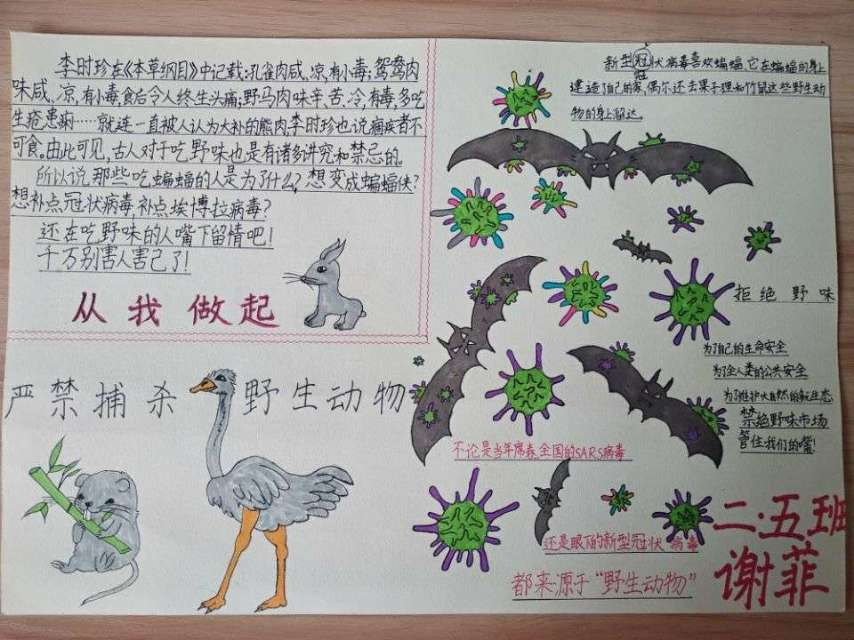 李时珍在《本草纲目》中记载:孔雀肉咸、凉,有小毒;鸳鸯肉
味咸、凉,有小毒,食后令人终生头痛;野马肉味辛、苦、冷,有毒,多吃
生疮患痢……就连一直被人认为大补的熊肉李时珍也说痼疾者不
可食。由此可见,古人对于吃野味也是有诸多讲究和禁忌的。
所以说那些吃蝙蝠的人是为了什么?想变成蝙蝠侠?
想补点冠状病毒,补点埃博拉病毒?
还在吃野味的人嘴下留情吧!
千万别害人害己了!
从我做起
严禁捕杀野生动物
新型冠状病毒喜欢蝙蝠,它在蝙蝠的身上
冠
建造了自己的家,偶尔还去果子狸和竹鼠这些野生动
物的身上溜达
拒绝野味
为了自己的生命安全
为了全人类的公共安全
为了维护大自然的生态
禁绝野味市场
管住我们的嘴!
不论是当年席卷全国的SARS病毒
还是眼下的新型冠状病毒
都来源于“野生动物”
二·五班
谢菲